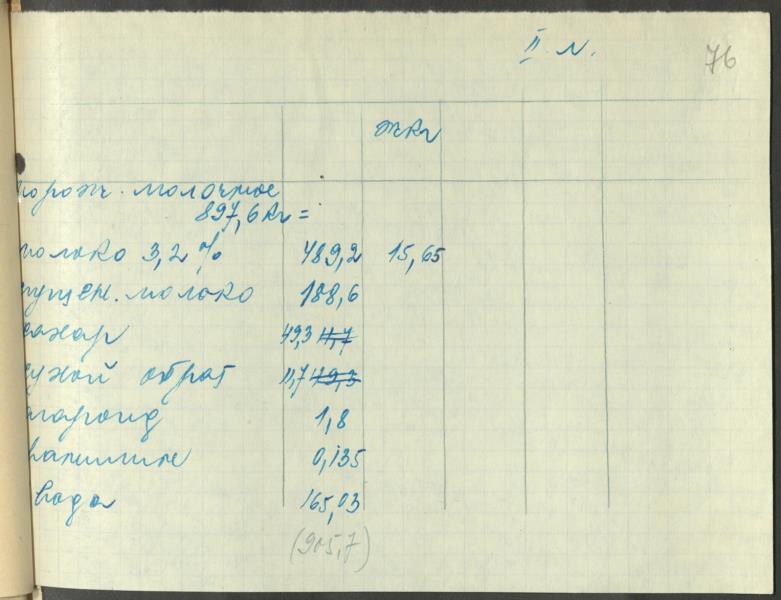 II. м.
76
жкг
морож. молочное
897,6 кг =
молоко 3,2 % 489,2 15,65
сгущен. молоко 188,6
сахар 49,3 11,7
сухой обрат 11,7 49,3
агароид 1,8
ванилин 0,135
вода 165,03
(905,7)